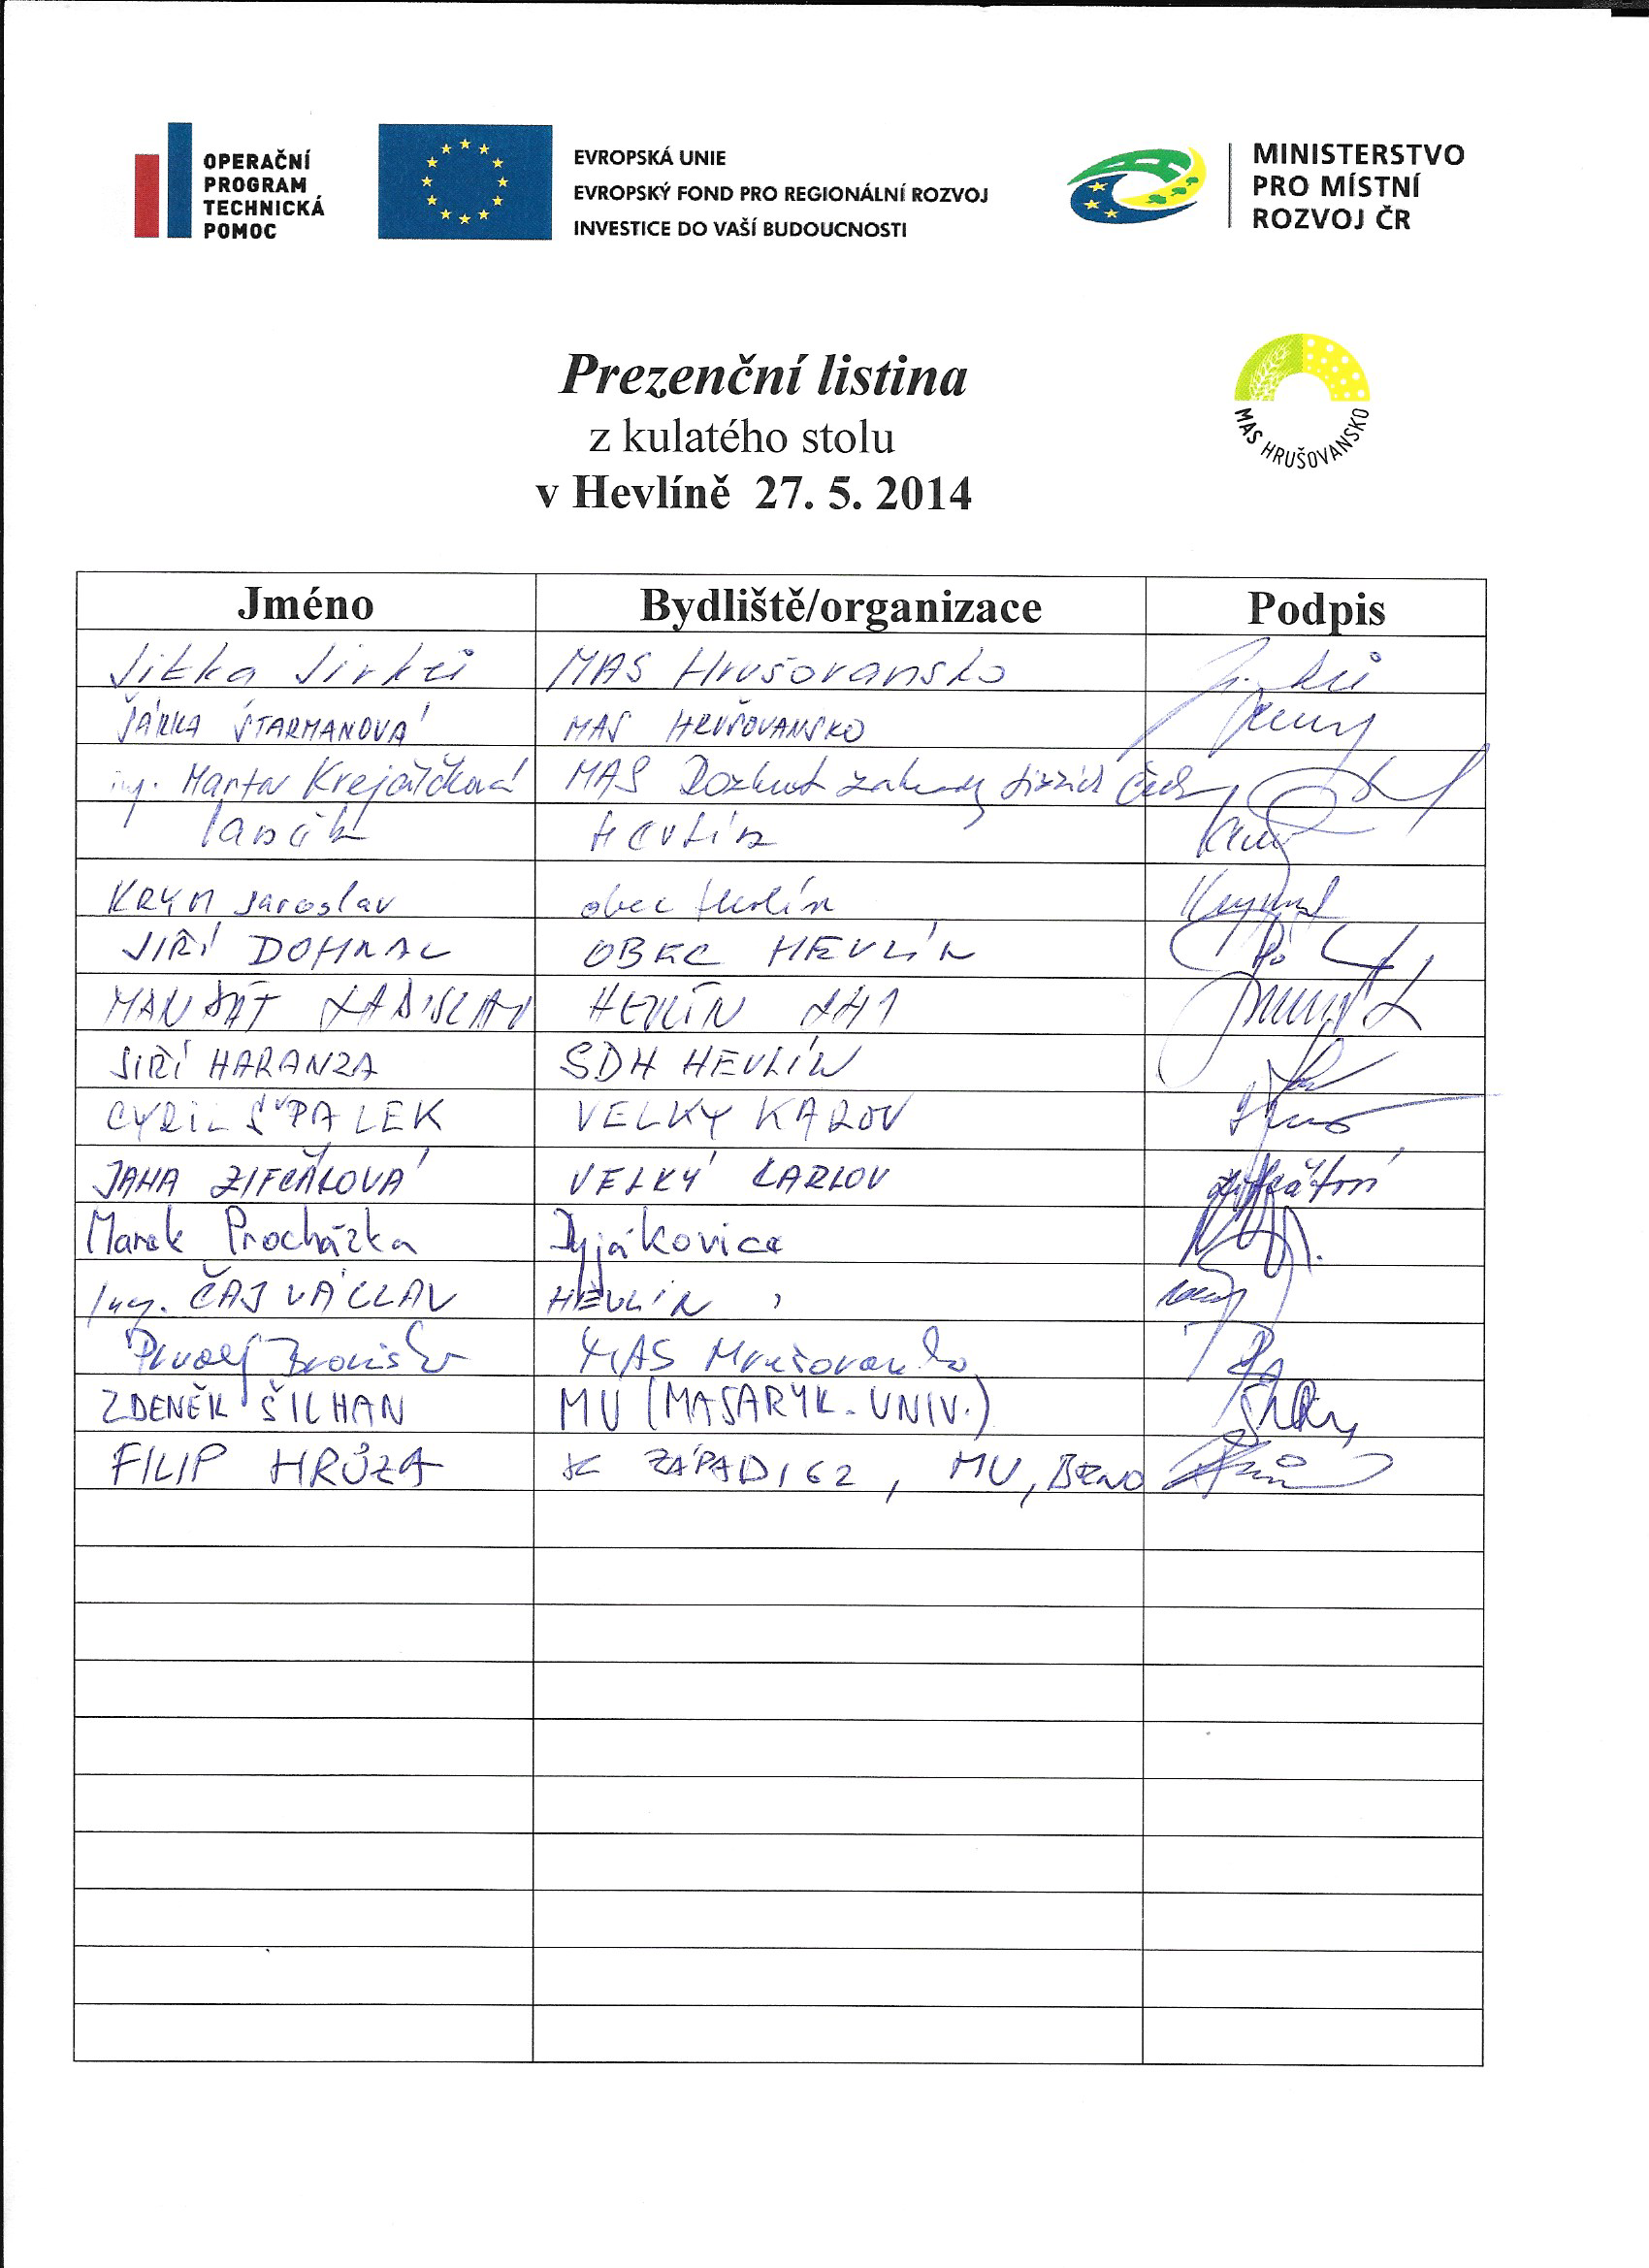 OPERAČNÍ
PROGRAM
TECHNICKÁ
POMOC
EVROPSKÁ UNIE
EVROPSKÝ FOND PRO REGIONÁLNÍ ROZVOJ
INVESTICE DO VAŠÍ BUDOUCNOSTI
MINISTERSTVO
PRO MÍSTNÍ
ROZVOJ ČR
Prezenční listina
z kulatého stolu
v Hevlíně 27. 5. 2014
MAS HRUŠOVANSKO
Jméno Bydliště/organizace Podpis
Jitka Jirků MAS Hrušovansko
ŠÁRKA ŠTARMANOVÁ MAS HRUŠOVANSKO
ing. Marta MAS
HEVLÍN
KRYM Jaroslav obec Hevlín
JIŘÍ DOHNAL OBEC HEVLÍN
LADISLAV HEVLÍN
JIŘÍ HARANZA SDH HEVLÍN
CYRIL ŠPALEK VELKÝ KAROV
JANA ZIFČÁKOVÁ VELKÝ KARLOV
Marek Procházka Dyjákovice
Ing. ČAJ VÁCLAV HEVLÍN
MAS
ZDENĚK ŠILHAN MU (MASARYK. UNIV.)
FILIP HRŮZA K ZÁPADI 62, MU, BRNO